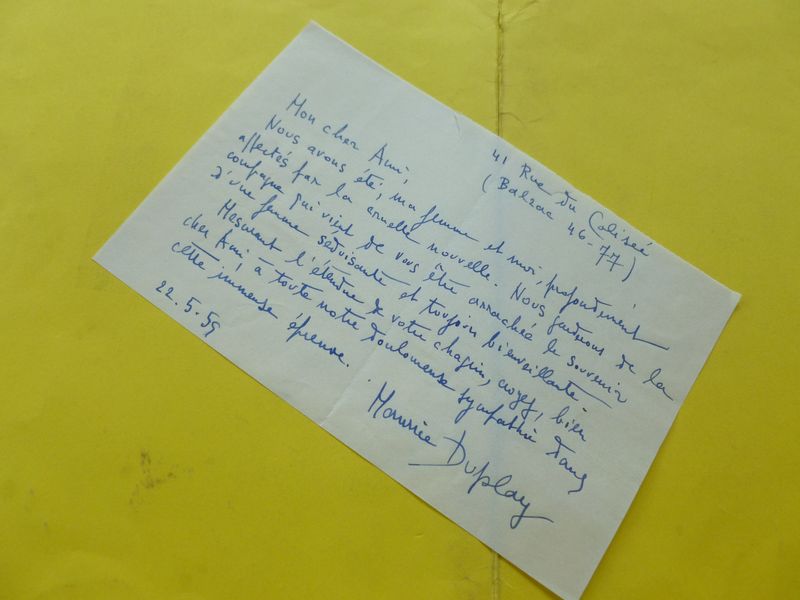 41 Rue du Colisée
(Balzac 46-77)
Mon cher Ami,
Nous avons été, ma femme et moi, profondément
affectés par la cruelle nouvelle. Nous garderons de la
compagne qui vient de vous être arrachée le souvenir
d'une femme séduisante et toujours bienveillante.
Mesurant l'étendue de votre chagrin, croyez, bien
cher Ami, à toute notre douloureuse sympathie dans
cette immense épreuve.
Maurice Duplay
22.5.59